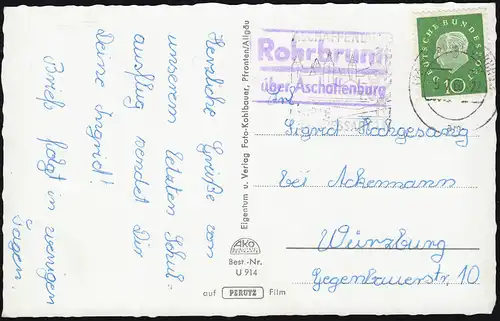 Herzliche Grüße von
unserem letzten Schul-
ausflug sendet Dir
Deine Ingrid!
Brief folgt in wenigen
Tagen.
Eigentum u. Verlag Foto-Kohlbauer, Pfronten/Allgäu
AKO
Best.-Nr.
U 914
auf PERUTZ Film
Rohrbrunn
über Aschaffenburg
DEUTSCHE BUNDESPOST
10
Frl.
Sigrid Hochgesang
bei Ackermann
Würzburg
Gegenbauerstr. 10